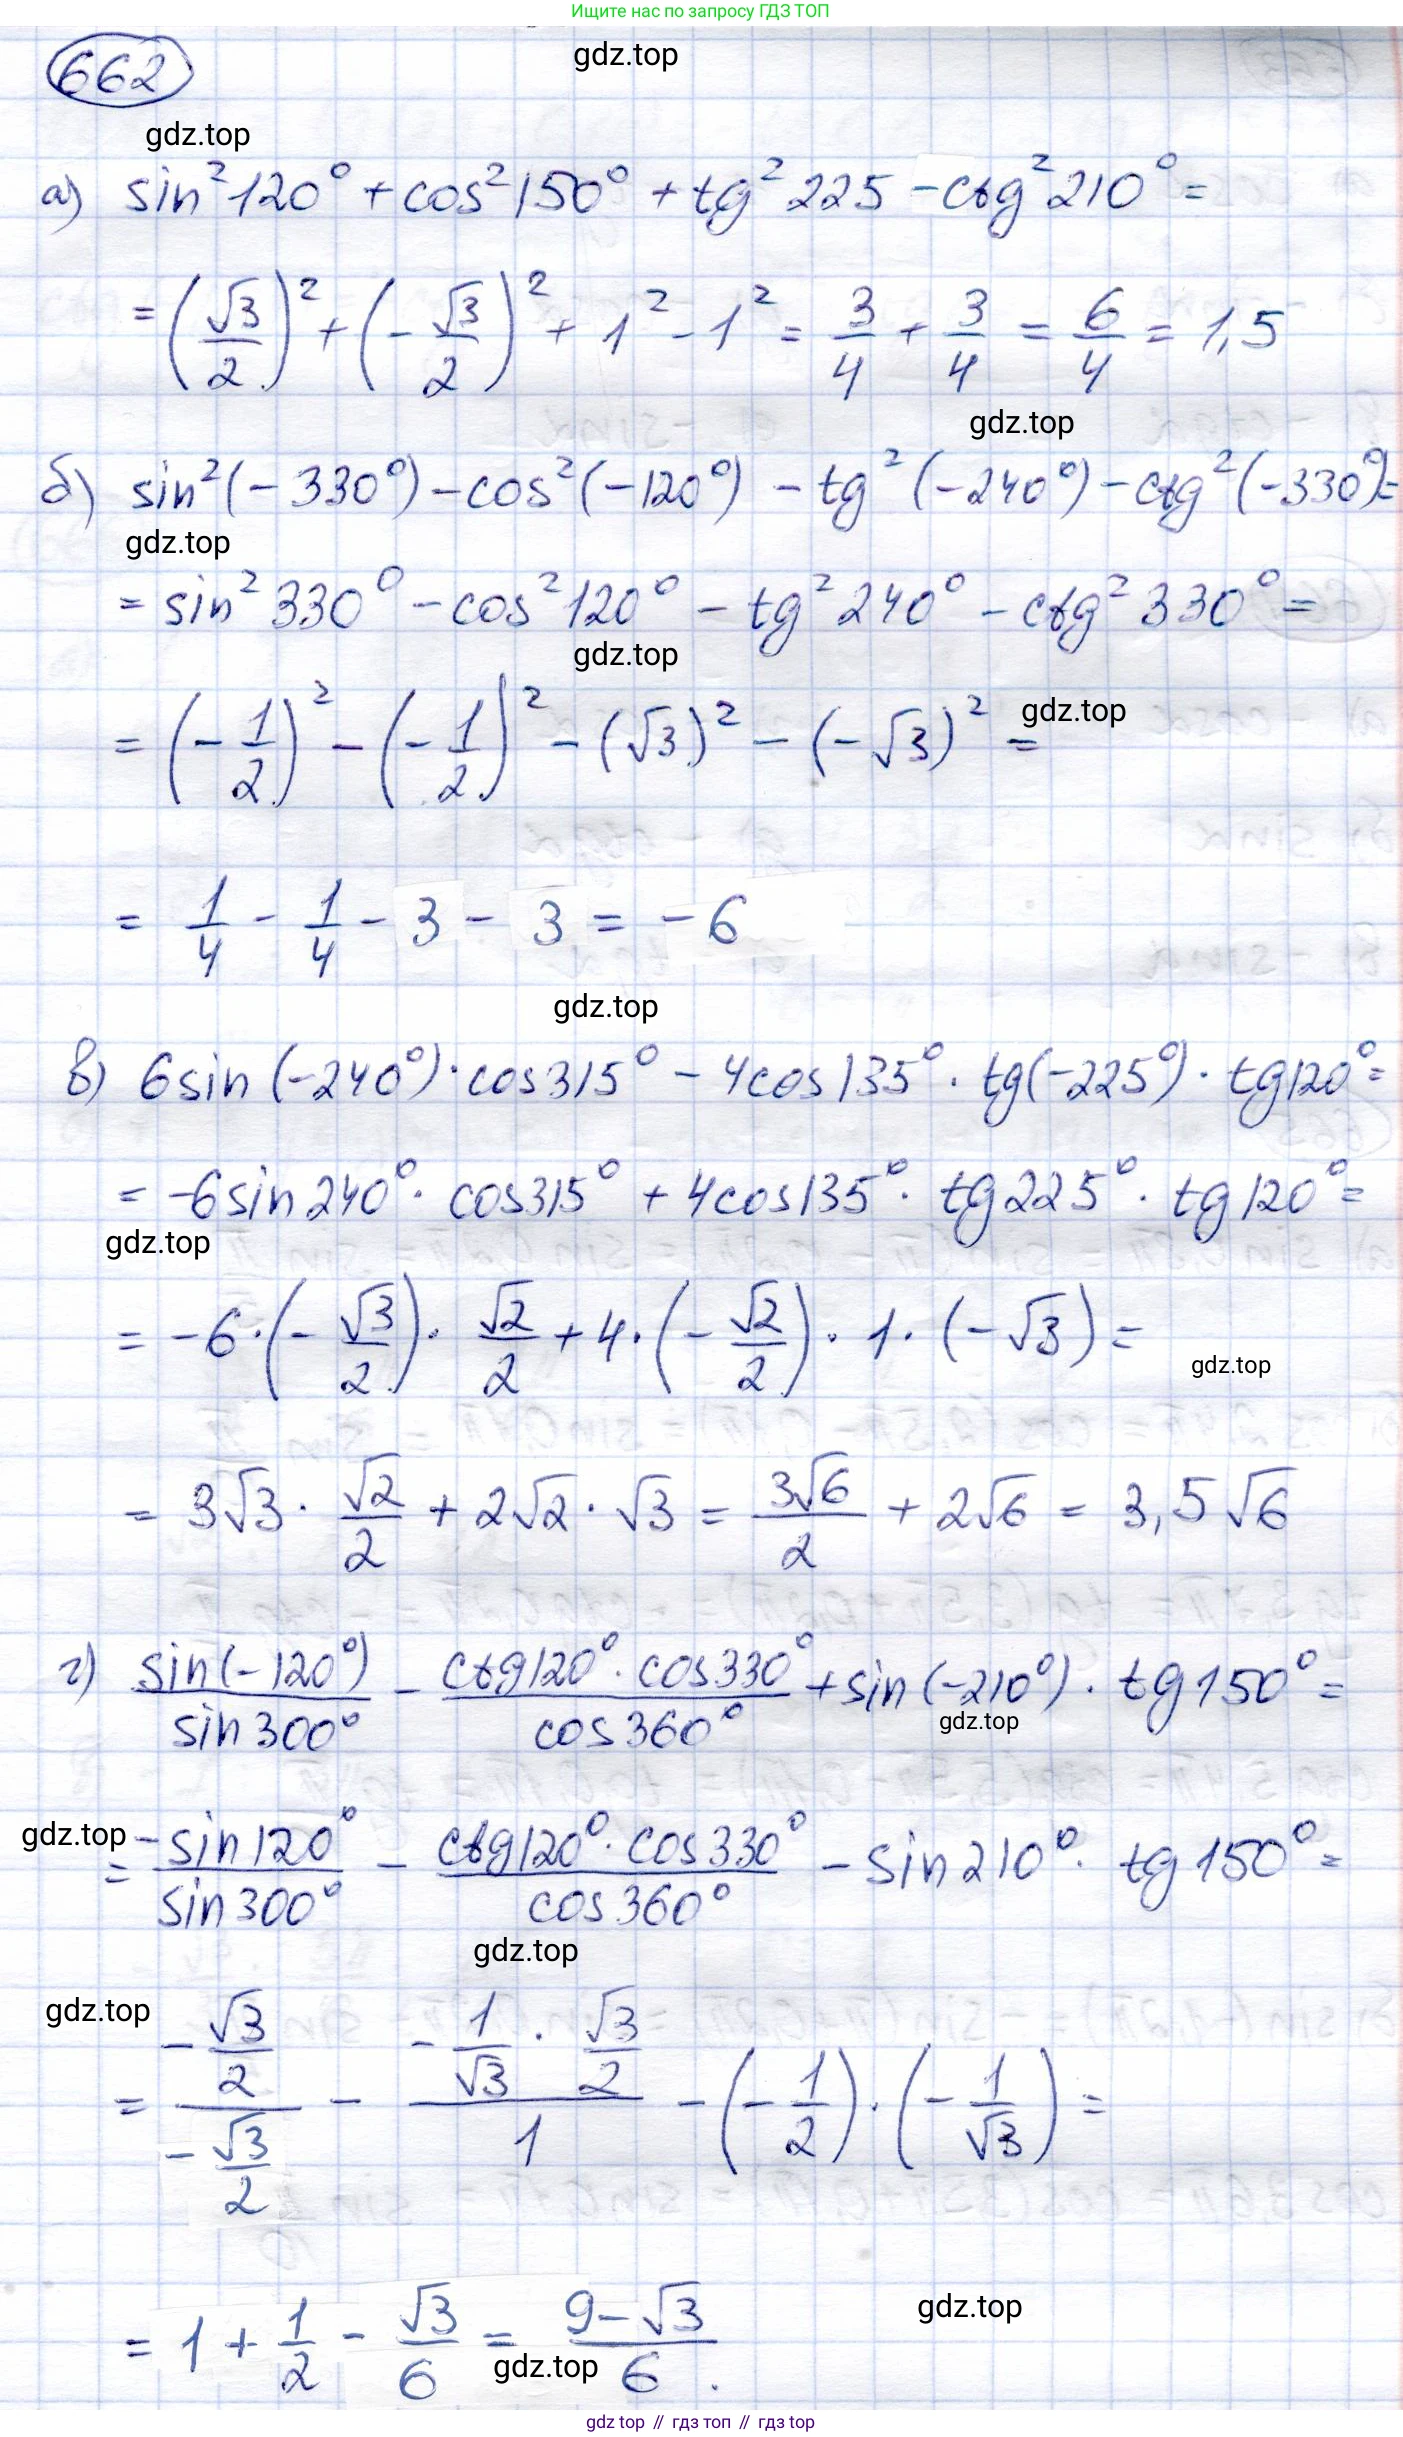 Ищите нас по запросу ГДЗ ТОП
662
gdz.top
gdz.top
а) sin² 120° + cos² 150° + tg² 225 - ctg² 210° =
= (√3/2)² + (-√3/2)² + 1² - 1² = 3/4 + 3/4 = 6/4 = 1,5
gdz.top
б) sin²(-330°) - cos²(-120°) - tg²(-240°) - ctg²(-330°) =
gdz.top
= sin² 330° - cos² 120° - tg² 240° - ctg² 330° =
gdz.top
= (-1/2)² - (-1/2)² - (√3)² - (-√3)² =
gdz.top
= 1/4 - 1/4 - 3 - 3 = -6
gdz.top
в) 6sin(-240°)·cos315° - 4cos135°·tg(-225°)·tg120° =
= -6sin240°·cos315° + 4cos135°·tg225°·tg120° =
gdz.top
= -6·(-√3/2)·√2/2 + 4·(-√2/2)·1·(-√3) =
gdz.top
= 3√3·√2/2 + 2√2·√3 = 3√6/2 + 2√6 = 3,5√6
г) sin(-120°)/sin300° - ctg120°·cos330°/cos360° + sin(-210°)·tg150° =
gdz.top
gdz.top
= -sin120°/sin300° - ctg120°·cos330°/cos360° - sin210°·tg150° =
gdz.top
gdz.top
= (-√3/2)/(-√3/2) - (-1/√3·√3/2)/1 - (-1/2)·(-1/√3) =
gdz.top
= 1 + 1/2 - √3/6 = (9-√3)/6.
gdz.top
gdz top // гдз топ // гдз top